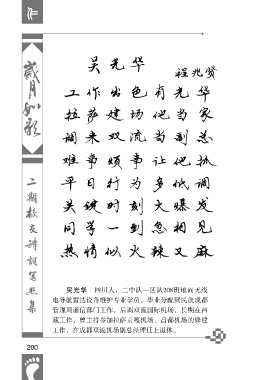 岁月如歌
二期校友诗词写照集
吴光华
程兆贤
工作出色有光华
拉萨建场他当家
调来双流当副总
难事烦事让他抓
平日行为多低调
关键时刻大爆发
同学一到急相见
热情似火辣又麻
吴光华 四川人，二中队一区队208班地面无线
电导航雷达设备维护专业学员，毕业分配到民航成都
管理局通信部门工作，后调双流国际机场，长期在西
藏工作，曾主持参加拉萨贡嘎机场、昌都机场的修建
工作，在成都双流机场副总经理任上退休。
200